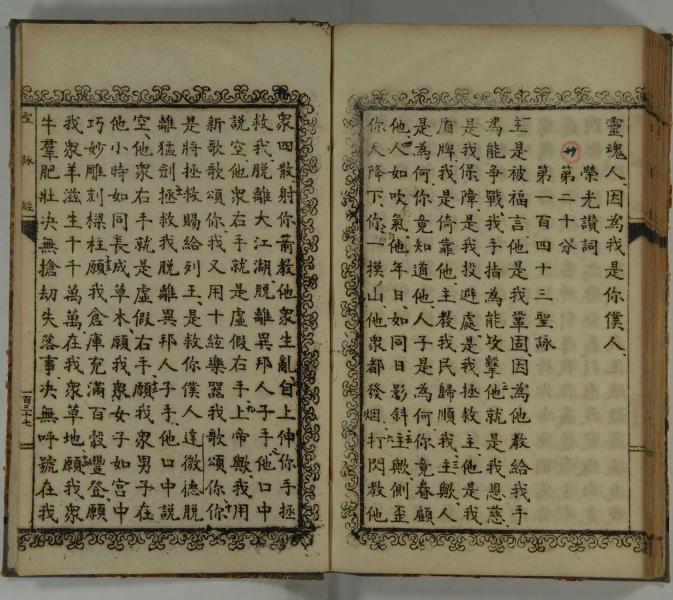 靈魂人因為我是你僕人
榮光讚詞
廿
第二十分
第一百四十三聖詠
主是被福言他是我鞏固因為他教給我手
為能爭戰我手指為能攻擊他就是我恩慈
是我保障是我投避處是我拯救主他是我
盾牌我是倚靠他主教我民歸順我主歟人
是為何你竟知道他人子是為何你竟眷顧
他人如吹氣他年日如同日影斜主歟側歪
你天降下你一摸山他衆都發烟打閃教他
衆四散射你箭教他衆生亂自上伸你手拯
救我脫離大江湖脫離異邦人子手他口中
說空他衆右手就是虛假右手上帝歟我用
新歌歌頌你我又用十絃樂器我歌頌你你
是將拯救賜給列王是救你僕人達微德脫
離猛劍拯救我脫離異邦人子手他口中說
空他衆右手就是虛假右手願我衆男子在
他小時如同長成草木願我衆女子如宮中
巧妙雕刻樑柱願我倉庫充滿百穀豐登願
我衆羊滋生千千萬萬在我衆草地願我衆
牛羣肥壯決無搶劫失落事決無呼號在我
聖詠經
百三十七